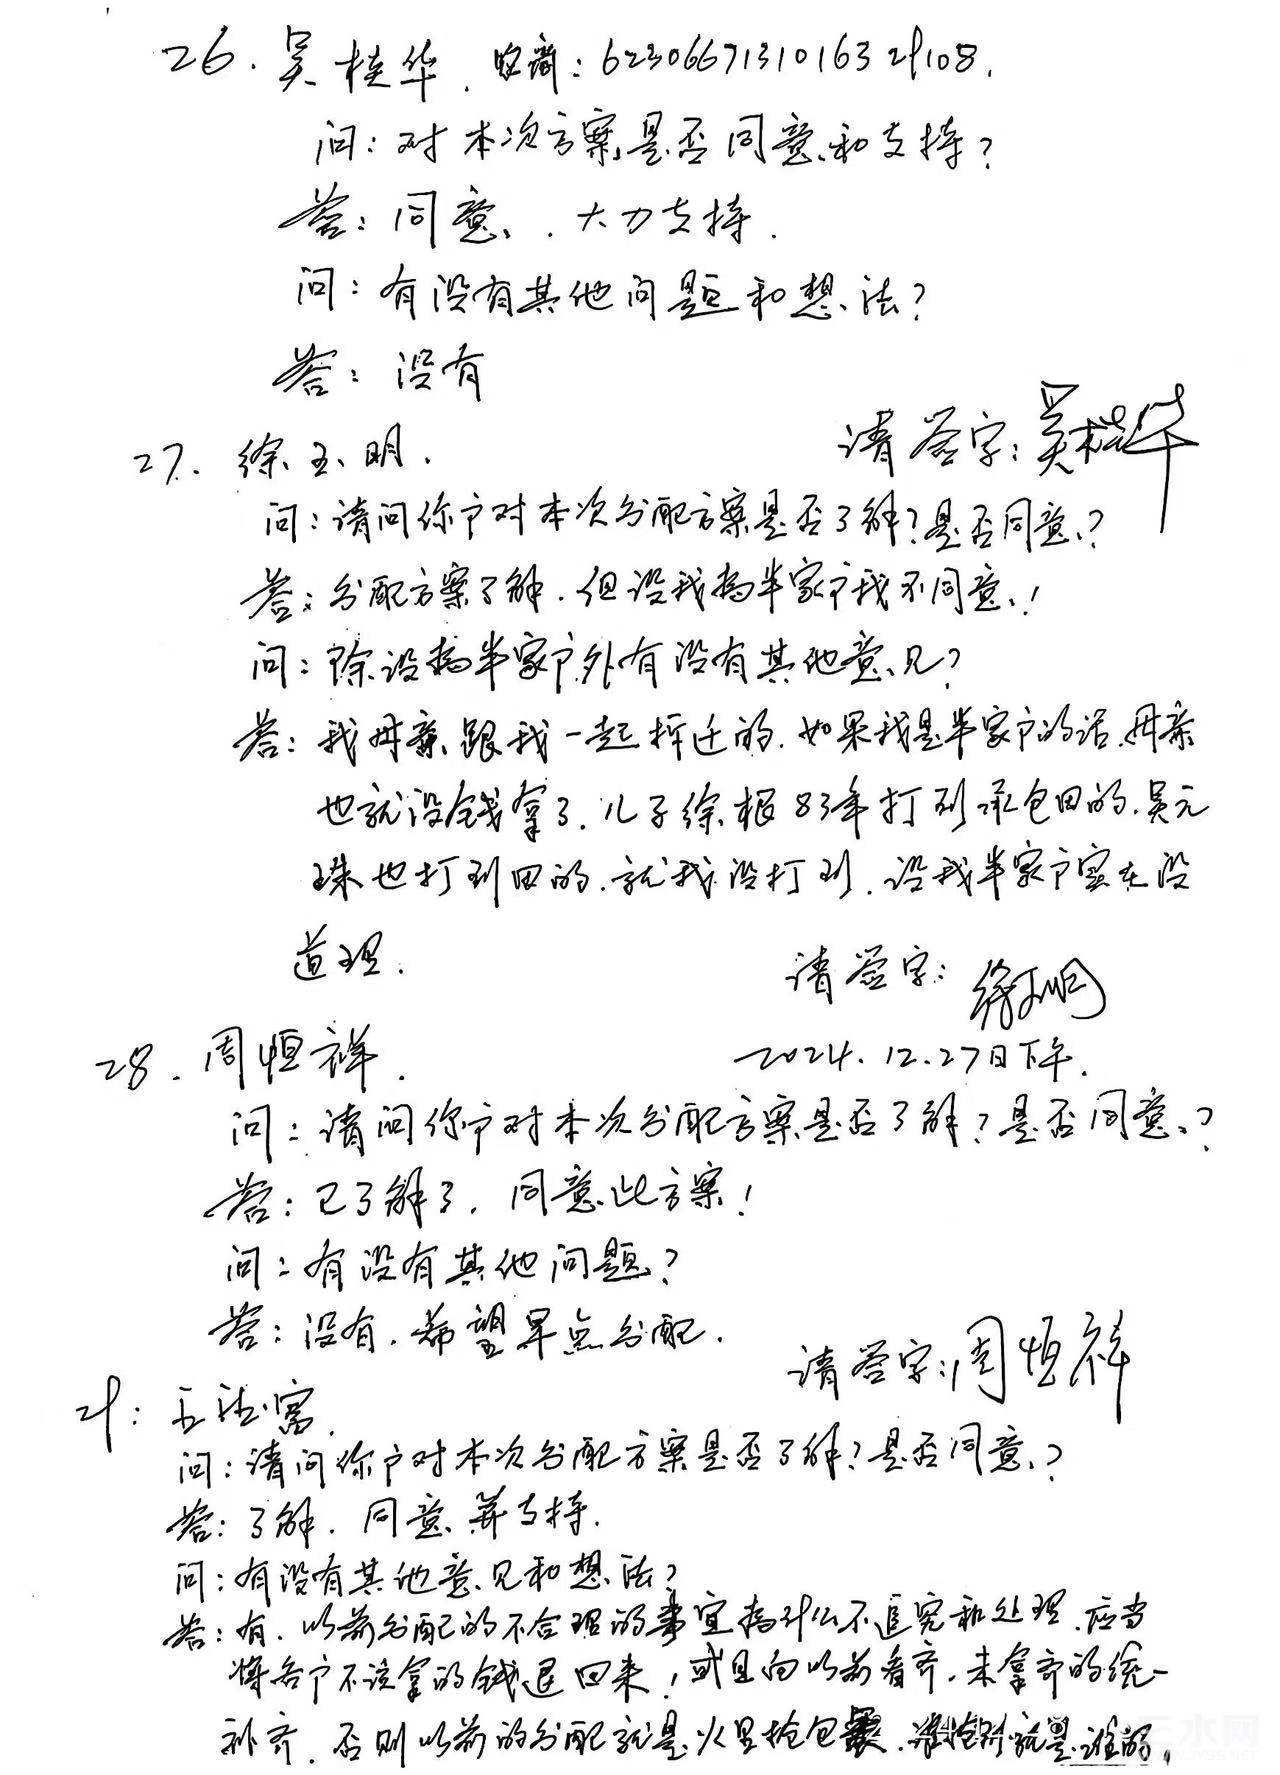 26. 吴桂华. 收商: 6230667131016329108.
问: 对本次方案是否同意和支持?
答: 同意, 大力支持.
问: 有没有其他问题和想法?
答: 没有
请签字: 吴桂华
27. 徐玉明.
问: 请问你户对本次分配方案是否了解? 是否同意?
答: 分配方案了解. 但设我为半家户我不同意!
问: 除设为半家户外有没有其他意见?
答: 我母亲跟我一起拆迁的. 如果我是半家户的话. 母亲
也就没钱拿了. 儿子徐根83年打到承包田的. 吴元
珠也打到田的. 就我没打到. 设我半家户实在没
道理.
请签字: 徐玉明
2024.12.27日下午.
28. 周恒祥.
问: 请问你户对本次分配方案是否了解? 是否同意?
答: 已了解了. 同意此方案!
问: 有没有其他问题?
答: 没有. 希望早点分配.
请签字: 周恒祥
29: 王法富.
问: 请问你户对本次分配方案是否了解? 是否同意?
答: 了解. 同意并支持.
问: 有没有其他意见和想法?
答: 有. 以前分配的不合理的事宜为什么不追究和处理. 应当
将各户不该拿的钱退回来! 或且向以前看齐. 未拿齐的统一
补齐. 否则以前的分配就是火里抢包裹. 谁抢到就是谁的.
三水网
WWW.JYSS.NET